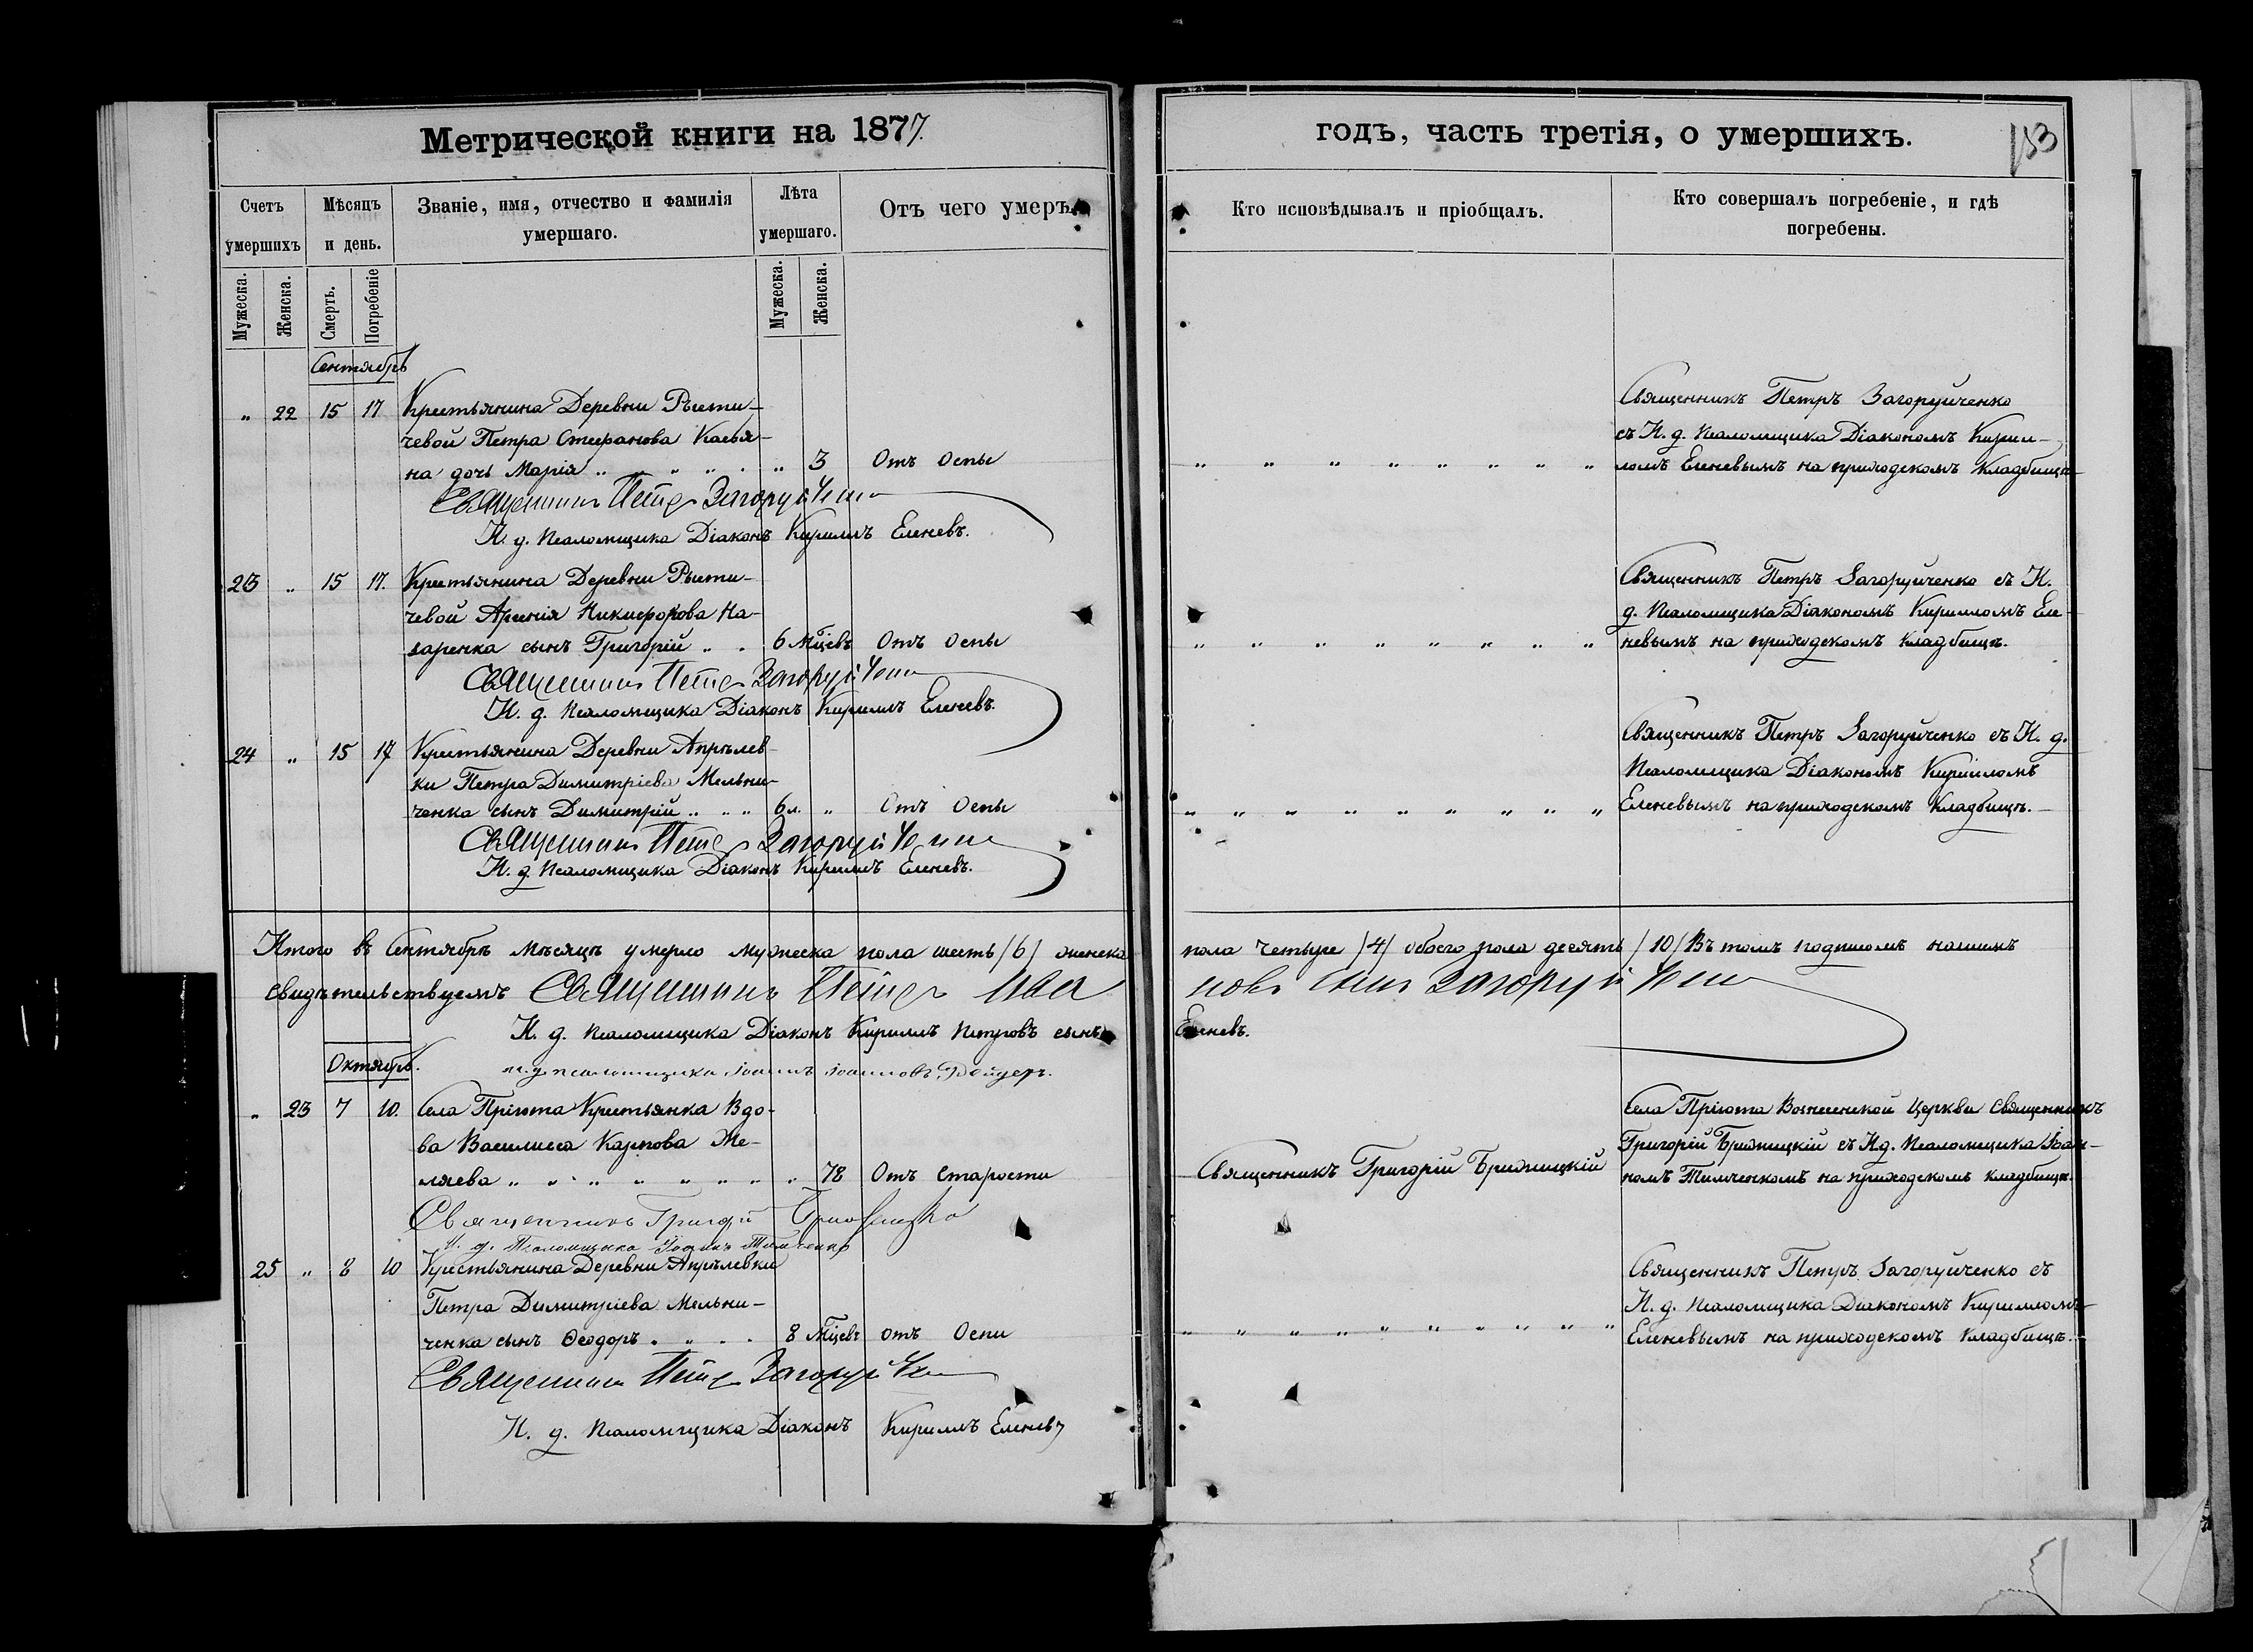 Метрической книги на 1877.
годъ, часть третія, о умершихъ.
153
Счетъ умершихъ
Мѣсяцъ и день.
Званіе, имя, отчество и фамилія умершаго.
Лѣта умершаго.
Отъ чего умеръ.
Кто исповѣдывалъ и пріобщалъ.
Кто совершалъ погребеніе, и гдѣ погребены.
Мужеска.
Женска.
Смерть.
Погребеніе
Мужеска.
Женска.
Сентябрь
Священникъ Петръ Загоруйченко
" 22 15 17 Крестьянина Деревни Рыети-
съ И. д. Псаломщика Діакономъ Кирил-
чевой Петра Стефанова Касья-
на дочь Марія " " " " " " 3 Отъ Оспы
" " " " " " " " ломъ Еленевымъ на приходскомъ кладбищѣ
Священникъ Петръ Загоруйченко
И. д. Псаломщика Діаконъ Кириллъ Еленевъ.
23 " 15 17. Крестьянина Деревни Рыети-
Священникъ Петръ Загоруйченко съ И.
чевой Арсенія Никифорова На-
д. Псаломщика Діакономъ Кирилломъ Еле-
заренка сынъ Григорій " " 6 Мцевъ Отъ Оспы
" " " " " " " " невымъ на приходскомъ кладбищѣ.
Священникъ Петръ Загоруйченко
И. д. Псаломщика Діаконъ Кириллъ Еленевъ.
24 " 15 17 Крестьянина Деревни Апрѣлев-
Священникъ Петръ Загоруйченко съ И. д.
ки Петра Димитріева Мельни-
Псаломщика Діакономъ Кирилломъ
ченка сынъ Димитрій " " " 6 л. " Отъ Оспы
" " " " " " " " " Еленевымъ на приходскомъ кладбищѣ.
Священникъ Петръ Загоруйченко
И. д. Псаломщика Діаконъ Кириллъ Еленевъ.
Итого въ Сентябрѣ мѣсяцѣ умерло мужеска пола шесть /6/ женска пола четыре /4/ обоего пола десять /10/ Въ томъ подписомъ нашимъ
свидѣтельствуемъ Священникъ Петръ Ивановъ сынъ Загоруйченко
И. д. Псаломщика Діаконъ Кириллъ Петровъ сынъ Еленевъ.
Октябрь.
и. д. псаломщика Іоаннъ Іоанновъ
" 23 7 10. Села Пріюта Крестьянка Вдо-
Села Пріюта Вознесенской Церкви Священникъ
ва Василиса Карпова Же-
Григорій съ И д. Псаломщика Іоан-
ляева " " " " " " " " 78 Отъ Старости
Священникъ Григорій
номъ Тимченкомъ на приходскомъ кладбищѣ.
Священникъ Григорій
И. д. Псаломщика Іоаннъ Тимченко
25 " 8 10 Крестьянина Деревни Апрѣлевки
Священникъ Петръ Загоруйченко съ
Петра Димитріева Мельни-
И. д. Псаломщика Діакономъ Кирилломъ
ченка сынъ Ѳеодоръ " " " " 8 Мцевъ отъ Оспи
" " " " " " " " " " Еленевымъ на приходскомъ кладбищѣ.
Священникъ Петръ Загоруйченко
И. д. Псаломщика Діаконъ Кириллъ Еленевъ